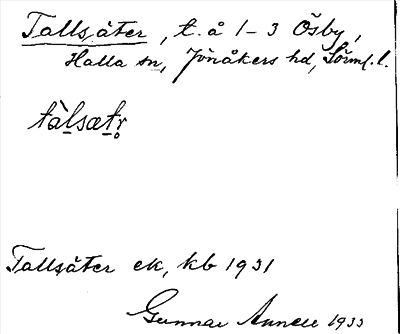 Tallsäter, t. å 1-3 Ösby,
Halla sn, Jönåkers hd, Sörml. l.
tàlsætr̥
Tallsäter ek, kb 1931
Gunnar Annell 1933